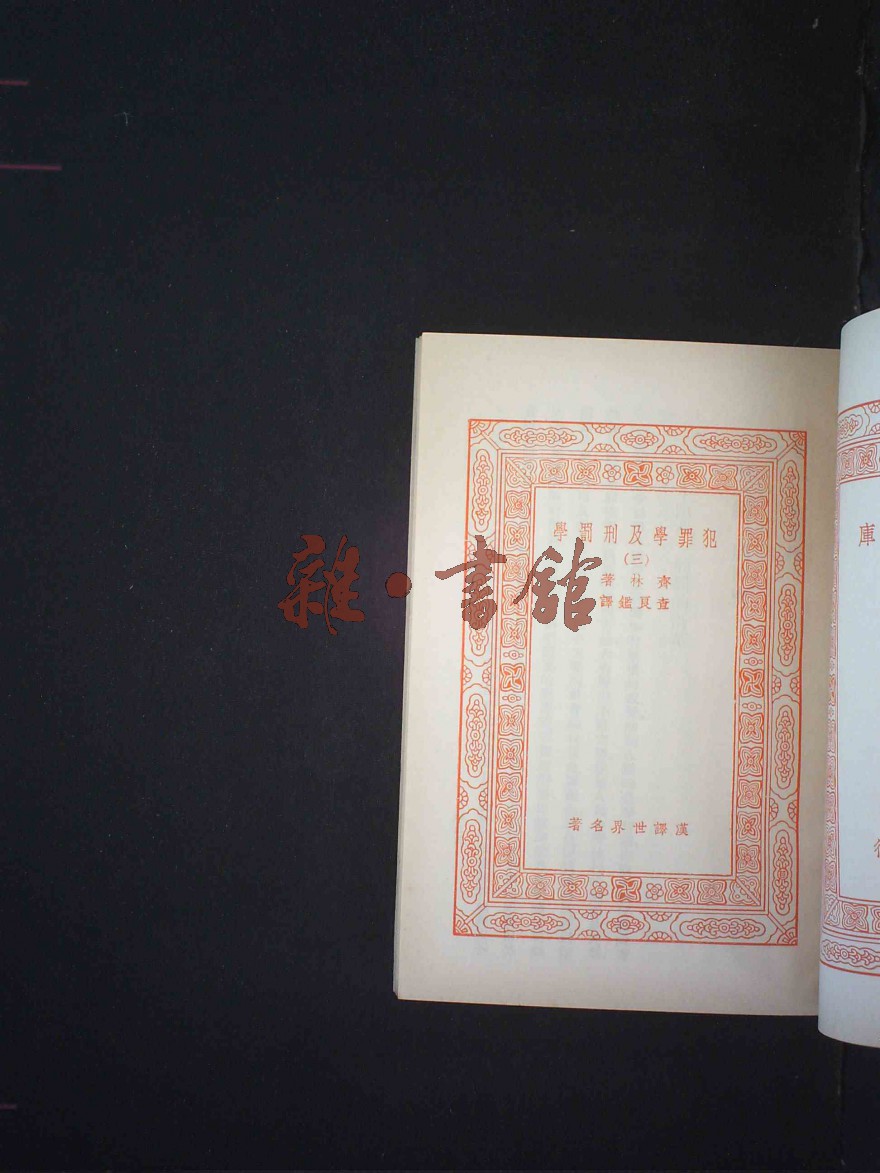 犯罪學及刑罰學
(三)
齊林著
查良鑑譯
漢譯世界名著
庫
雜·書館